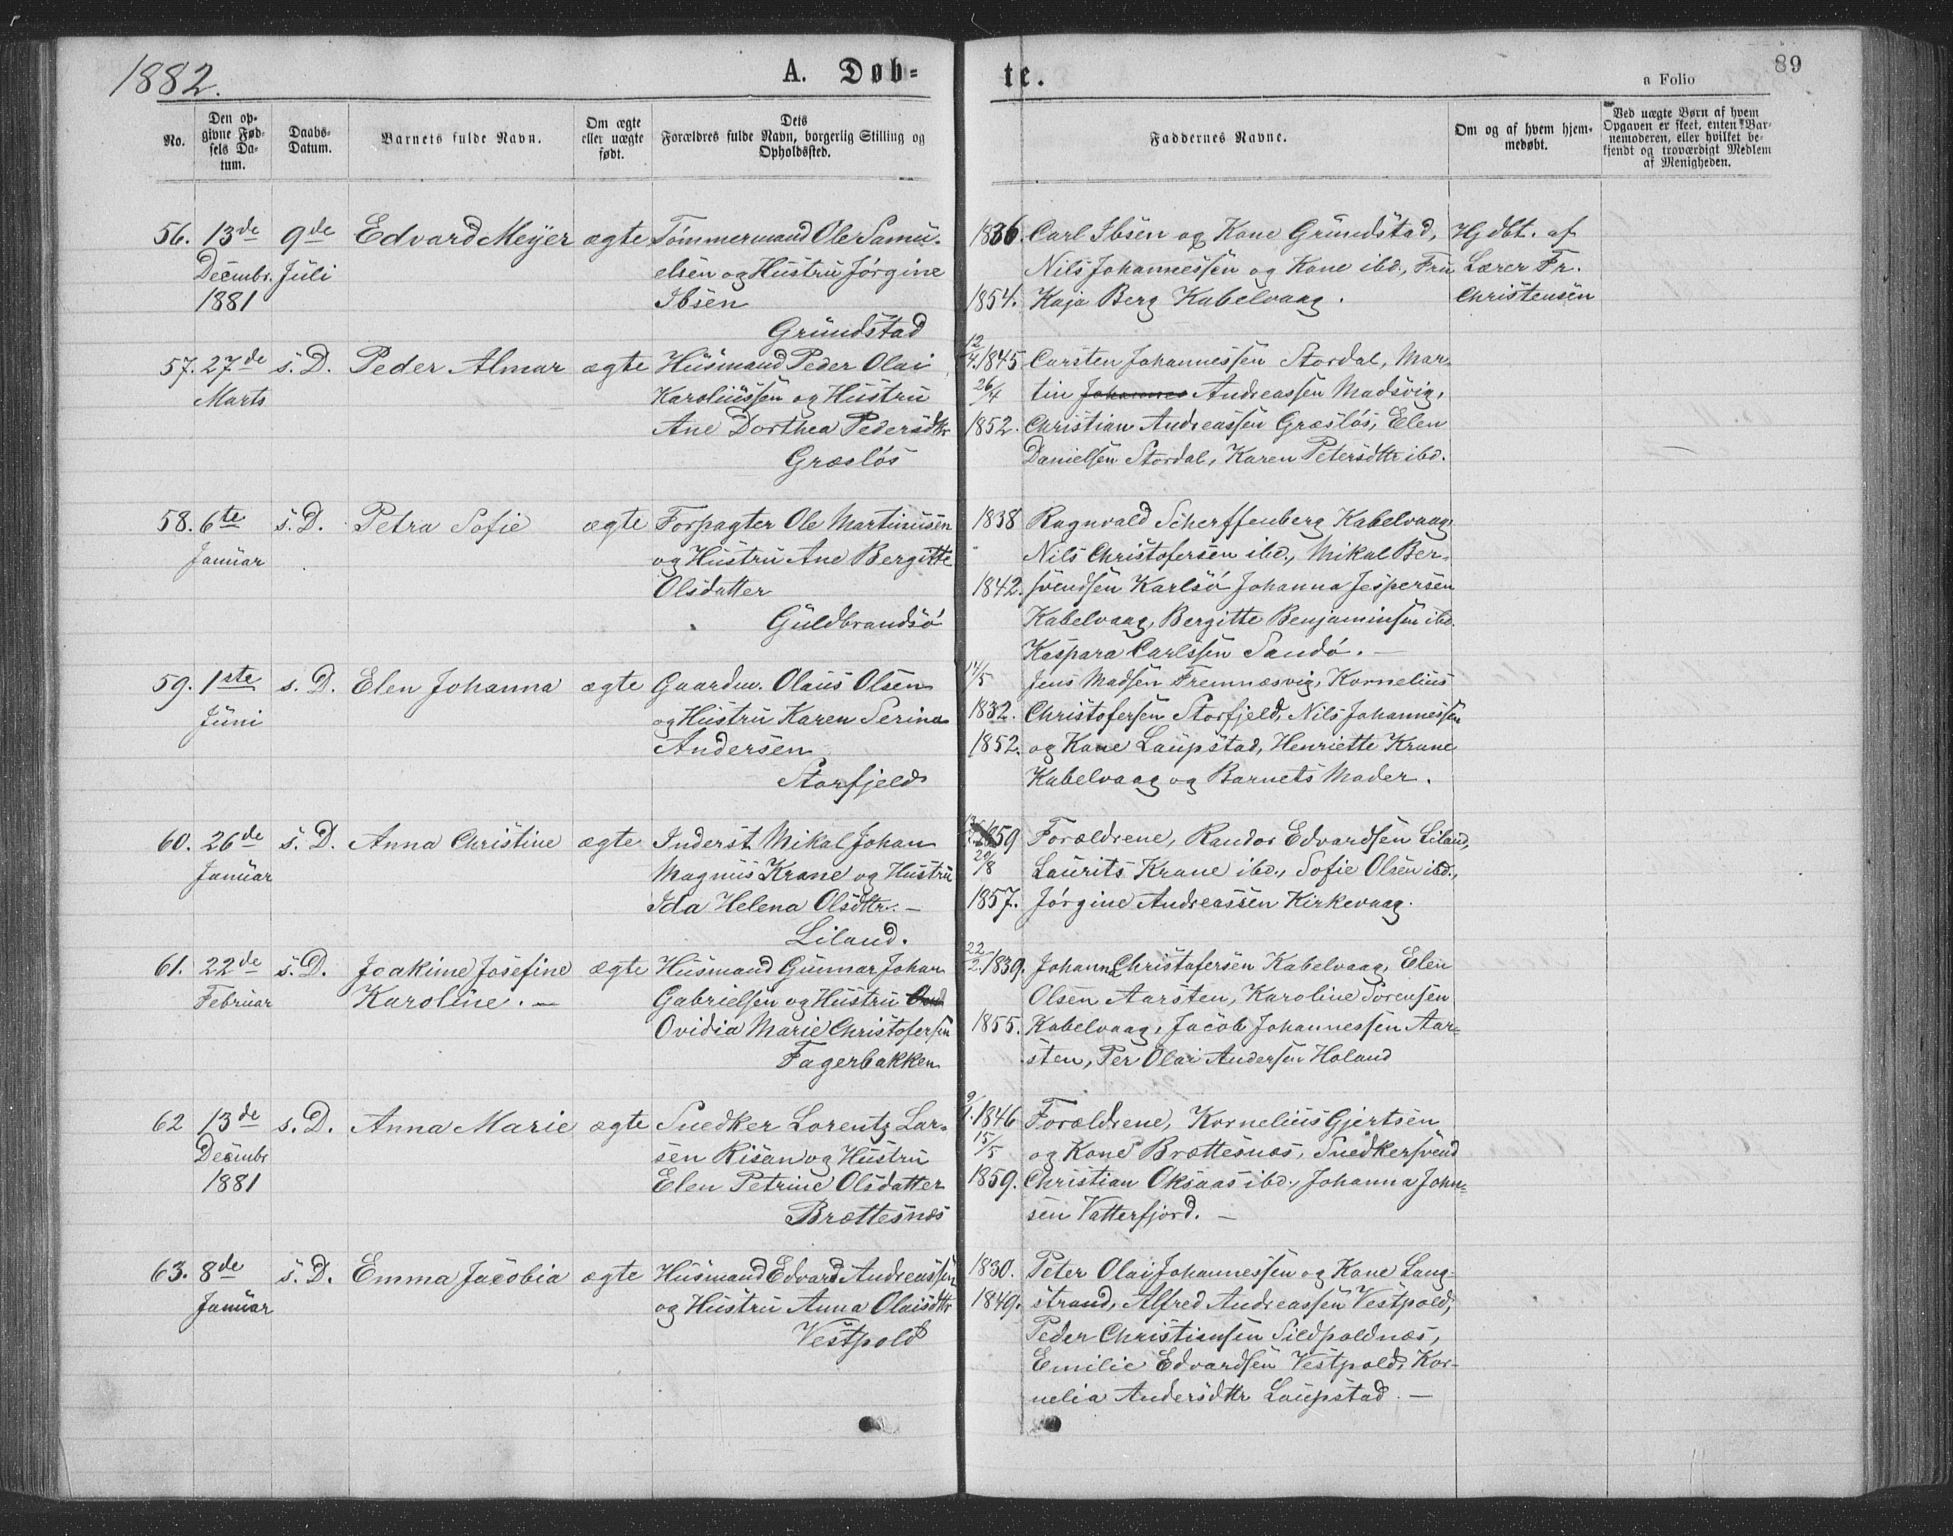 1882.
A. Døb-
te.
a Folio
89
No.
Den op-
givne Fød-
sels Da-
tum.
Daabs-
Datum.
Barnets fulde Navn.
Om ægte
eller uægte
født.
Dets
Forældres fulde Navn, borgerlig Stilling og
Opholdssted.
Faddernes Navne.
Om og af hvem hjem-
medøbt.
Ved uægte Børn af hvem
Opgaven er skeet, enten Bar-
nemoderen, eller hvilket be-
kjendt og troværdigt Medlem
af Menigheden.
56. 13de 9de Edvard Meyer ægte Tømmermand Ole Samu-
Decembr. Juli elsen og Hustru Jørgine
1881 Ibsen
Grundstad
1836. Carl Ibsen og Kone Grundstad, Hjdbt. af
Nils Johannessen og Kone ibd., Fru Lærer Fr.
1854. Kaja Berg Kabelvaag. Christensen
57. 27de s. D. Peder Almar ægte Husmand Peder Olai
Marts Karoliussen og Hustru
Ane Dorthea Pedersdtr
Græsløs
12/4 1845 Carsten Johannessen Stordal, Mar-
26/4 tin Johannes Andreassen Madsvig,
1852. Christian Andreassen Græsløs, Elen
Danielsen Stordal, Karen Petersdttr ibd.
58. 6te s. D. Petra Sofie ægte Forpagter Ole Martinusen
Januar og Hustru Ane Bergitte
Olsdatter
Guldbrandsø
1838 Ragnvald Scherffenberg Kabelvaag,
Nils Christofersen ibd., Mikal Ber-
1842. svendsen Karlsø Johanna Jespersen
Kabelvaag, Bergitte Benjaminsen ibd.
Kaspara Carlssen Sandø. —
59. 1ste s. D. Elen Johanna ægte Gaardm. Olaus Olsen
Juni og Hustru Karen Serina
Andersen
Storfjeld
Jens Madsen Fremnæsvig, Kornelius
1832. Christofersen Storfjeld, Nils Johannessen
1852. og Kone Laupstad, Henriette Krane
Kabelvaag og Barnets Moder.
60. 26de s. D. Anna Christine ægte Inderst Mikal Johan
Januar Magnus Krane og Hustru
Ida Helena Olsdttr. —
Liland.
1859 Forældrene, Randor Edvardsen Liland,
29/8 Laurits Krane ibd., Sofie Olsen ibd.,
1857. Jørgine Andreassen Kirkevaag.
61. 22de s. D. Joakime Josefine ægte Husmand Gunnar Johan
Februar Karoline. — Gabrielsen og Hustru
Ovidia Marie Christofersen
Fagerbakken
22/2 1839. Johan Christofersen Kabelvaag, Elen
Olsen Aarsten, Karoline Sørensen
1855. Kabelvaag, Jacob Johannessen Aar-
sten, Per Olai Andersen Holand
62 13de s. D. Anna Marie ægte Snedker Lorentz Lar-
Decembr sen Risan og Hustru
1881 Elen Petrine Olsdatter
Brættesnæs
1846 Forældrene, Kornelius Gjertsen
15/5 og Kone Brættesnæs, Snedkersvend
1859. Christian Oksaas ibd., Johanna John-
sen Vatterfjord. —
63. 8de s. D. Emma Jacobia ægte Husmand Edvard Andreassen
Januar og Hustru Anna Olaisdttr
Vestpold
1830. Peter Olai Johannessen og Kone Lang-
1849. strand, Alfred Andreassen Vestpold,
Peder Christiansen Sildpoldnæs,
Emilie Edvardsen Vestpold, Kor-
nelia Andersdttr Laupstad. —